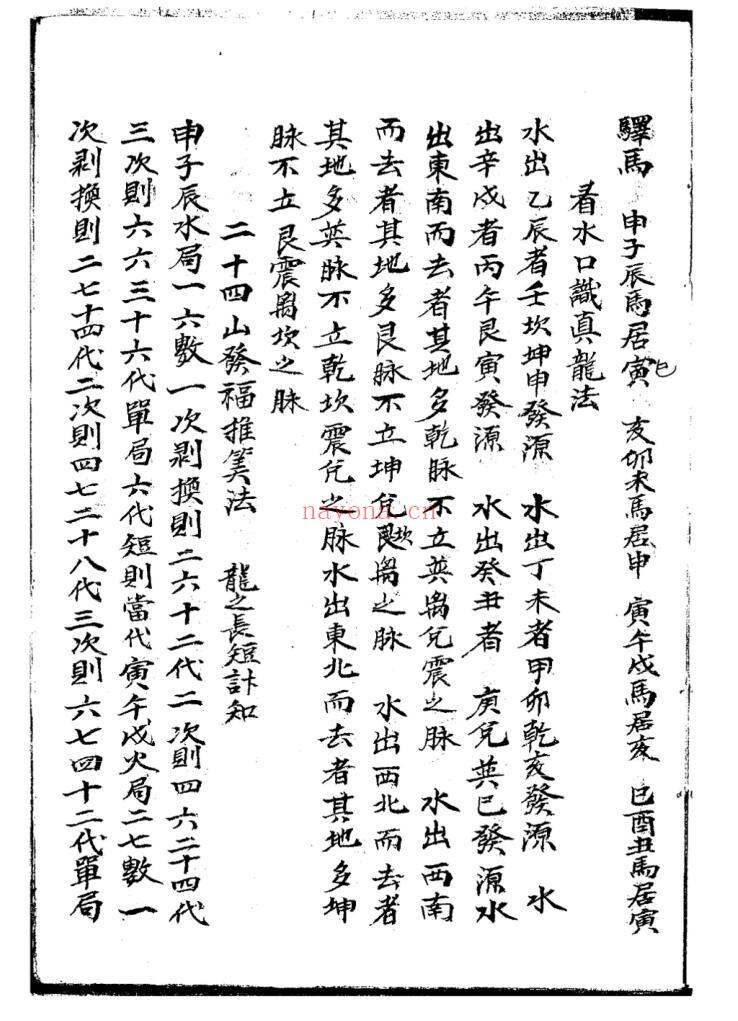 驛馬　申子辰馬居寅巳　亥卯未馬居申　寅午戌馬居亥　巳酉丑馬居寅
看水口識真龍法
水出乙辰者壬坎坤申發源　水出丁未者甲卯乾亥發源　水
出辛戌者丙午艮寅發源　水出癸丑者　庚兌英巳發源水
出東南而去者其地多乾脉不立英离兌震之脉　水出西南
而去者其地多艮脉不立坤兌坎艮离之脉　水出西北而去者
其地多英脉不立乾坎震兌之脉水出東北而去者其地多坤
脉不立艮震离坎之脉
二十四山發福推筭法　龍之長短訣知
申子辰水局一六數一次剥換則二六十二代二次則四六二十四代
三次則六六三十六代單局六代短則當代寅午戌火局二七數一
次剥換則二七十四代二次則四七二十八代三次則六七四十二代單局
nayona.cn